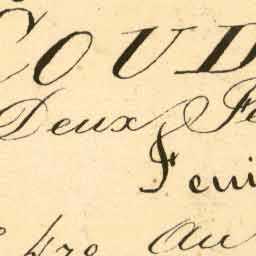 COUD
Deux Fe
Feui
478 Au